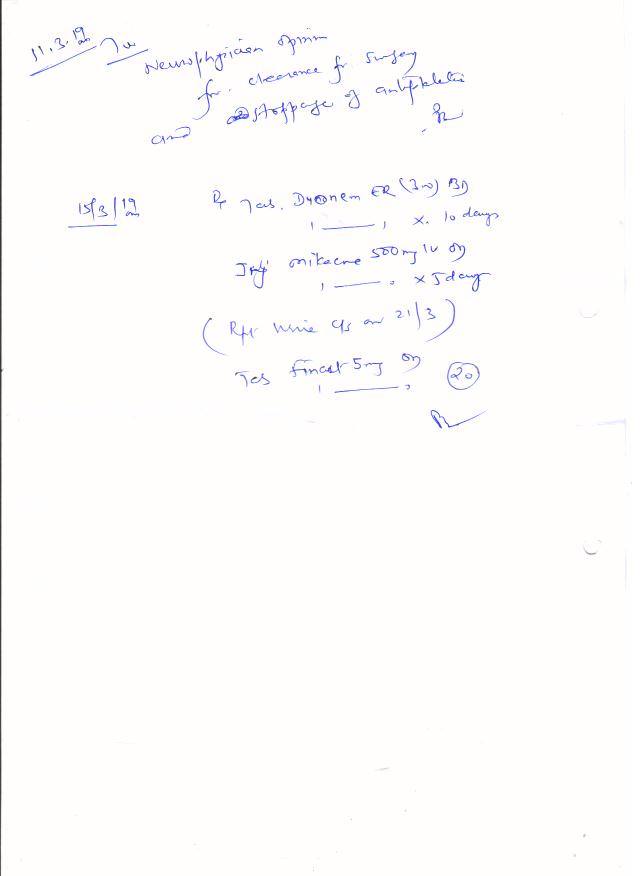 11.3.19
Neurophysician opinion
for clearance for surgery
and stoppage of antiplatelet
15/3/19 Tab. Duonem ER (300) BD
x 10 days
Inj Mikacine 500mg IV OD
x 5 days
(Rpt urine c/s on 21/3)
Tab Finast 5mg OD
20